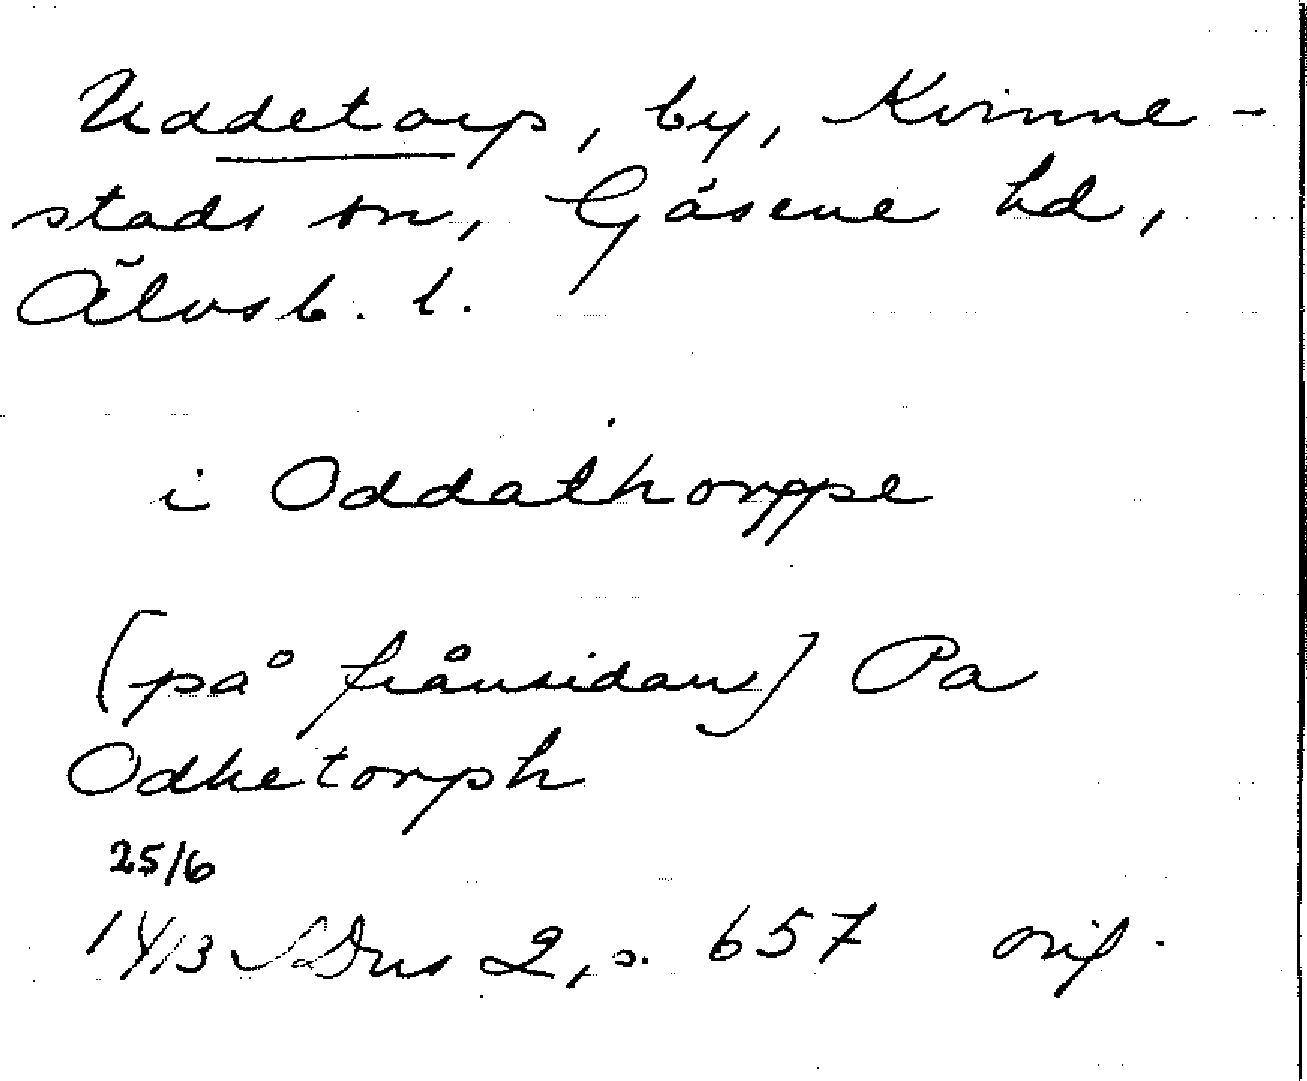 Uddetorp, by, Kvinne-
stads sn, Gäsene hd,
Älvsb. l.
i Oddathorppe
(på frånsidan) Pa
Odhetorph
25/6
1413 SDns 2, s. 657 orig.